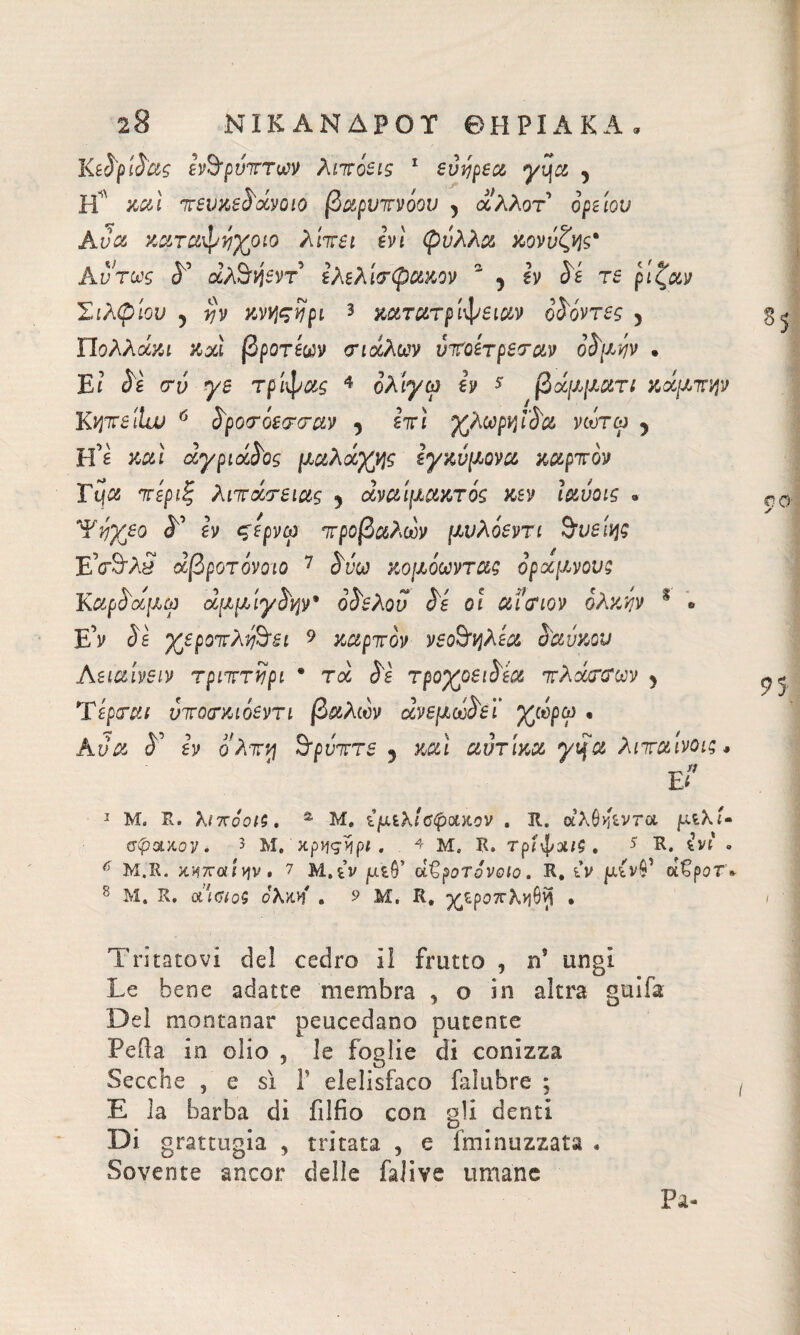 28 ΝΙΚΑΝΔΡΟΥ ΘΗΡΙΑΚΑ.
Κεδρίδας ἐνθρύπτων λιπόεις ¹ εὐήρεα γῦια,
Η῍ καὶ πευκεδάνοιο βαρυπνόου, ἄλλοτ᾽ ὀρείου
Αὖα καταψήχοιο λίπει ἐνὶ φύλλα κονύζης·
Αὔτως δ᾽ ἀλθήεντ᾽ ἐλελίσφακον ², ἐν δέ τε ῥίζαν
Σιλφίου, ἣν κνηστῆρι ³ κατατρίψειαν ὀδόντες, 85
Πολλάκι καὶ βροτέων σιάλων ὑποέτρεσαν ὀδμήν.
Εἰ δὲ σύ γε τρίψας ⁴ ὀλίγῳ ἐν ⁵ βάμματι κάμπην
Κηπείην ⁶ δροσόεσσαν, ἐπὶ χλωρηΐδα νώτῳ,
Η᾽ὲ καὶ ἀγριάδος μαλάχης ἐγκύμονα καρπὸν
Γῦια πέριξ λιπάσειας, ἀναίμακτός κεν ἰαύοις. 90
Ψήχεο δ᾽ ἐν στέρνῳ προβαλὼν μυλόεντι θυείης
Ε᾽σθλοῦ ἀβροτόνοιο ⁷ δύω κομόωντας ὀράμνους
Καρδάμῳ ἀμμίγδην· ὀδελοῦ δέ οἱ αἴσιον ὁλκήν ⁸.
Ε᾽ν δὲ χεροπλήθει ⁹ καρπὸν νεοθηλέα δαύκου
Λειαίνειν τριπτῆρι· τὰ δὲ τροχοειδέα πλάσσων, 95
Τέρσαι ὑποσκιόεντι βαλὼν ἀνεμώδεϊ χώρῳ.
Αὖα δ᾽ ἐν ὄλπῃ θρύπτε, καὶ αὐτίκα γῦια λιπαίνοις.
Εἴ
¹ M. R. λιπόοις. ² M. ἐμελίσφακον. R. ἀλθήεντα μελίσφακον. ³ M. κρηστῆρι. ⁴ M. R. τρίψαις. ⁵ R. ἐνί. ⁶ M.R. κηπαίην. ⁷ M. ἐν μεθ᾽ ἀβροτόνοιο. R. ἐν μένθ᾽ ἀβροτ. ⁸ M. R. αἴσιος ὁλκή. ⁹ M. R. χεροπληθῆ.
Tritatovi del cedro il frutto, n' ungi
Le bene adatte membra, o in altra guisa
Del montanar peucedano putente
Pesta in olio, le foglie di conizza
Secche, e sì l' elelisfaco salubre;
E la barba di silfio con gli denti
Di grattugia, tritata, e sminuzzata.
Sovente ancor delle salive umane
Pa-